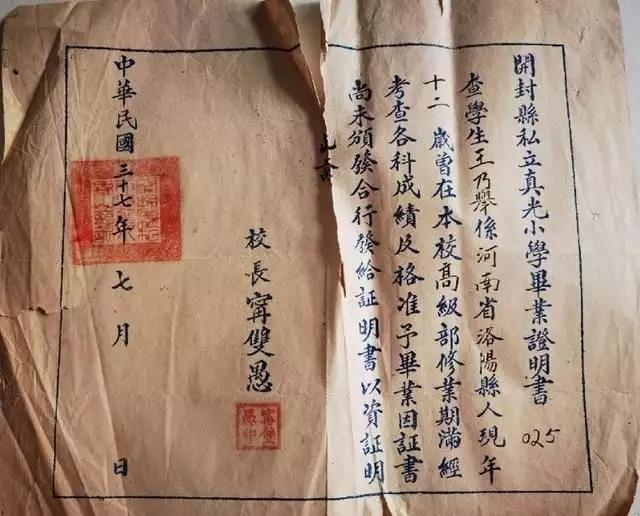 開封縣私立真光小學畢業證明書
025
查學生王乃舉係河南省洛陽縣人現年
十二歲曾在本校高級部修業期滿經
考查各科成績及格准予畢業因証書
尚未頒發合行發給証明書以資証明
此證
校長甯雙愚
甯雙愚印
中華民國三十七年七月 日